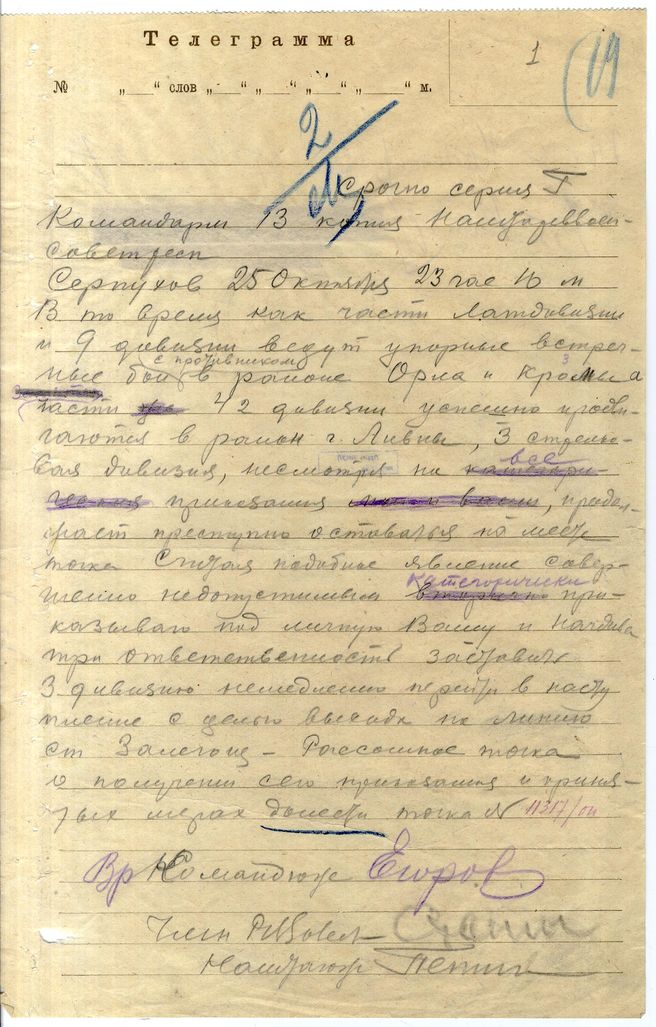 Телеграмма
1
19
№ „ “ слов „ “ „ “ „ “ „ “ м.
2
Срочно серия Г
Командарм 13 копия Наштареввоен-
советресп
Серпухов 25 Октября 23 час 10 м
В то время как части Латдивизии
и 9 дивизии ведут упорные встреч-
с противником
ные бои в районе Орла и Кромы а
части 42 дивизии успешно продви-
гаются в район г. Ливны, 3 стрелко-
вая дивизия, несмотря на все
приказания, продол-
жает преступно оставаться на месте
точка Считая подобное явление совер-
категорически
шенно недопустимым при-
казываю под личную Вашу и Начдива
три ответственность заставить
3 дивизию немедленно перейти в насту
пление с целью выхода на линию
ст Залегощ – Россошное точка
о получении сего приказания и приня-
тых мерах донести точка № 11317/оп
Вр Командюж Егоров
Член РВСовета Сталин
Наштаюж Петин